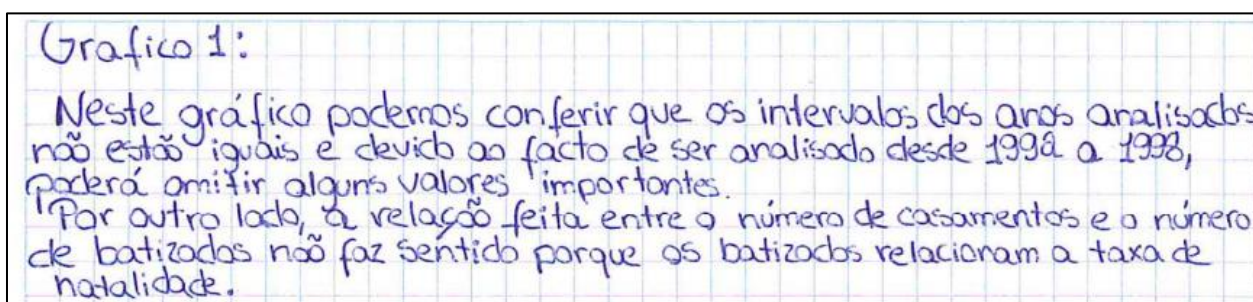 Grafico 1:
Neste gráfico podemos conferir que os intervalos dos anos analisados
não estão iguais e devido ao facto de ser analisado desde 1992 a 1998,
poderá omitir alguns valores importantes.
Por outro lado, a relação feita entre o número de casamentos e o número
de batizados não faz sentido porque os batizados relacionam a taxa de
natalidade.